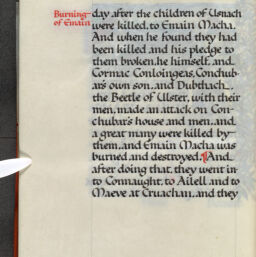 Burning
of Emain
day after the children of Usnach
were killed, to Emain Macha.
And when he found they had
been killed and his pledge to
them broken, he himself, and
Cormac Conloingeas, Conchub-
ar's own son, and Dubthach,
the Beetle of Ulster, with their
men, made an attack on Con-
chubar's house and men, and
a great many were killed by
them, and Emain Macha was
burned and destroyed. ¶ And
after doing that, they went in-
to Connaught, to Ailell and to
Maeve at Cruachan, and they